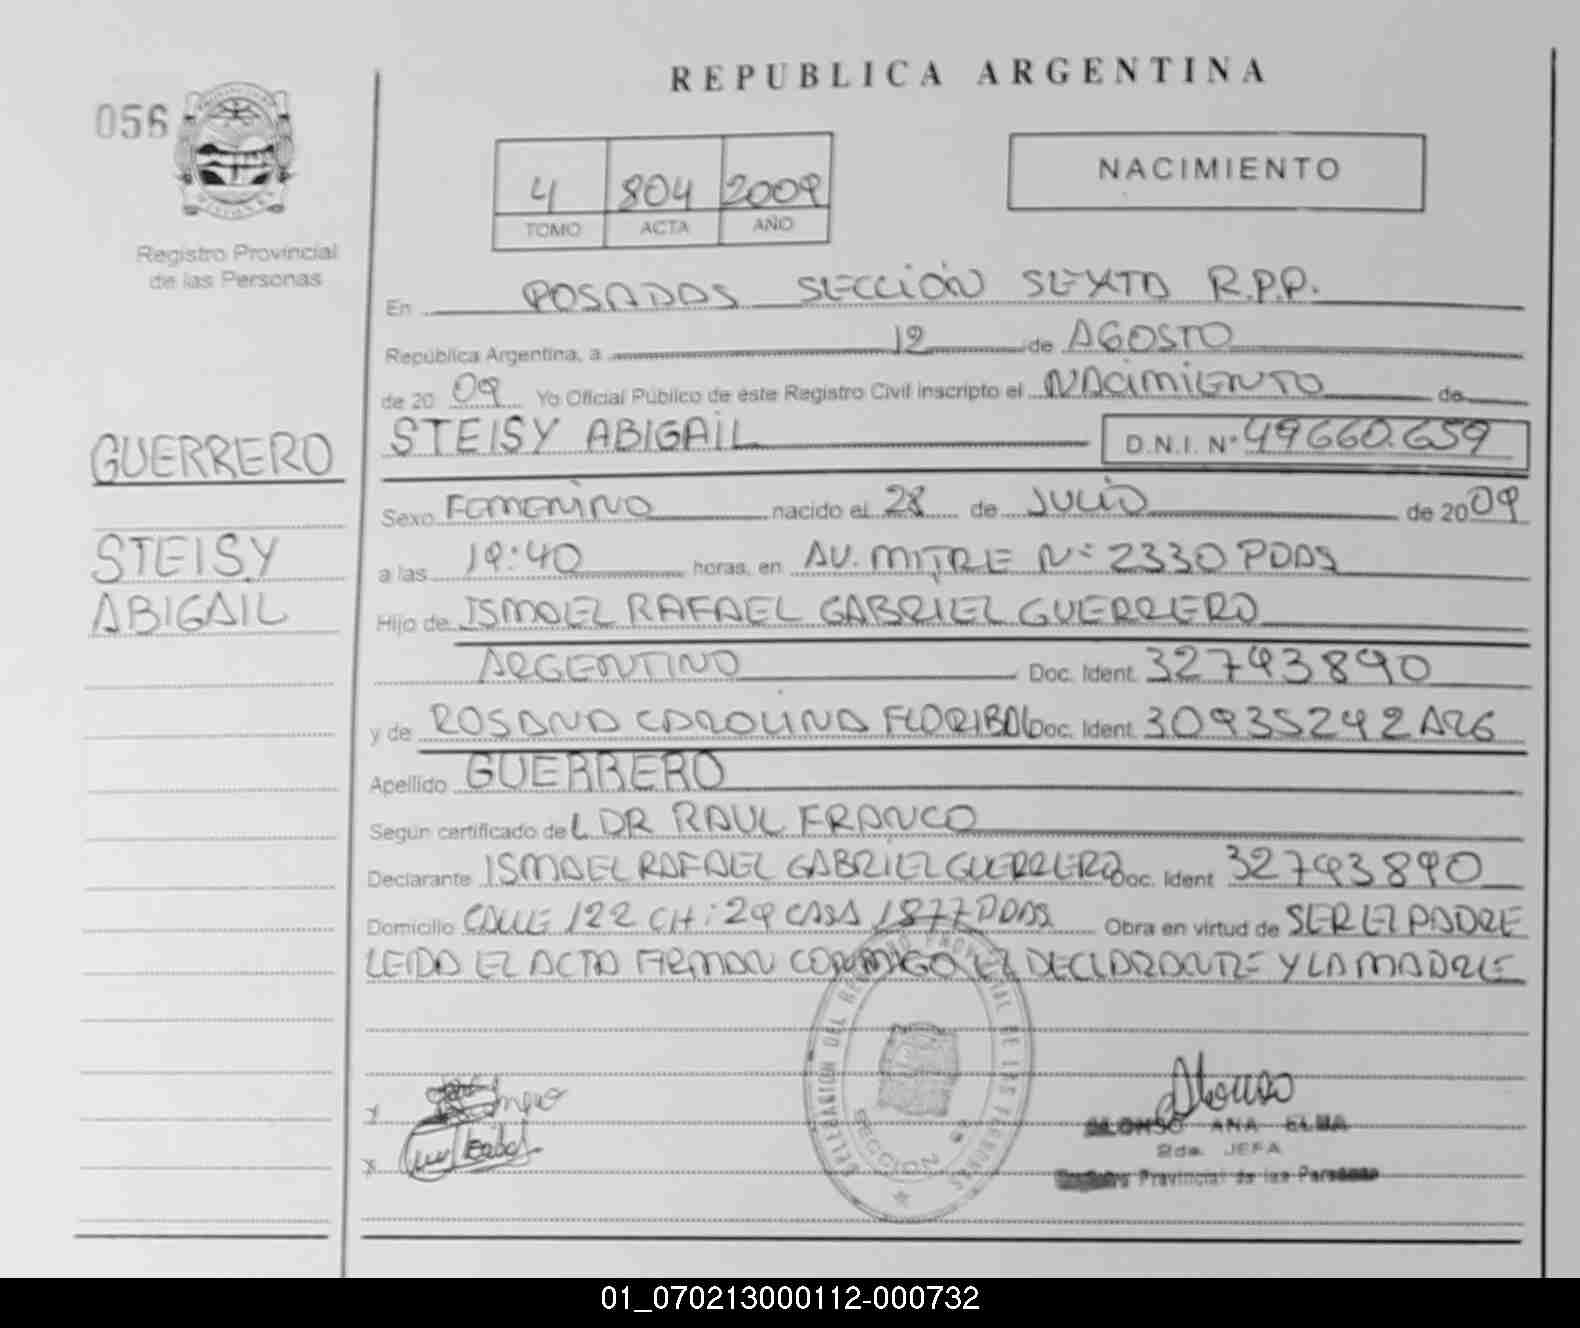 REPUBLICA ARGENTINA
056
NACIMIENTO
4 804 2009
TOMO ACTA AÑO
Registro Provincial
de las Personas
En POSADAS SECCIÓN SEXTA R.P.P.
República Argentina, a 12 de AGOSTO
de 20 09 Yo Oficial Público de éste Registro Civil inscripto el NACIMIENTO de
GUERRERO
STEISY ABIGAIL D.N.I. N° 49660.659
Sexo FEMENINO nacido el 28 de JULIO de 2009
STEISY
a las 19:40 horas, en AV. MITRE N° 2330 PDAS
ABIGAIL
Hijo de ISMAEL RAFAEL GABRIEL GUERRERO
ARGENTINO Doc. Ident. 32793890
y de ROSANA CAROLINA Doc. Ident. 30935292 ARG
Apellido GUERRERO
Según certificado de L DR RAUL FRANCO
Declarante ISMAEL RAFAEL GABRIEL GUERRERO Doc. Ident 32793890
Domicilio CALLE 122 CH: 29 CASA 1877 PDAS Obra en virtud de SER EL PADRE
LEIDA EL ACTA FIRMAN CONMIGO EL DECLARANTE Y LA MADRE
DELEGACION DEL REGISTRO PROVINCIAL DE LAS PERSONAS
SECCION 6a
x
x
Alonso
ALONSO ANA ELMA
2da. JEFA
Registro Provincial de las Personas
01_070213000112-000732